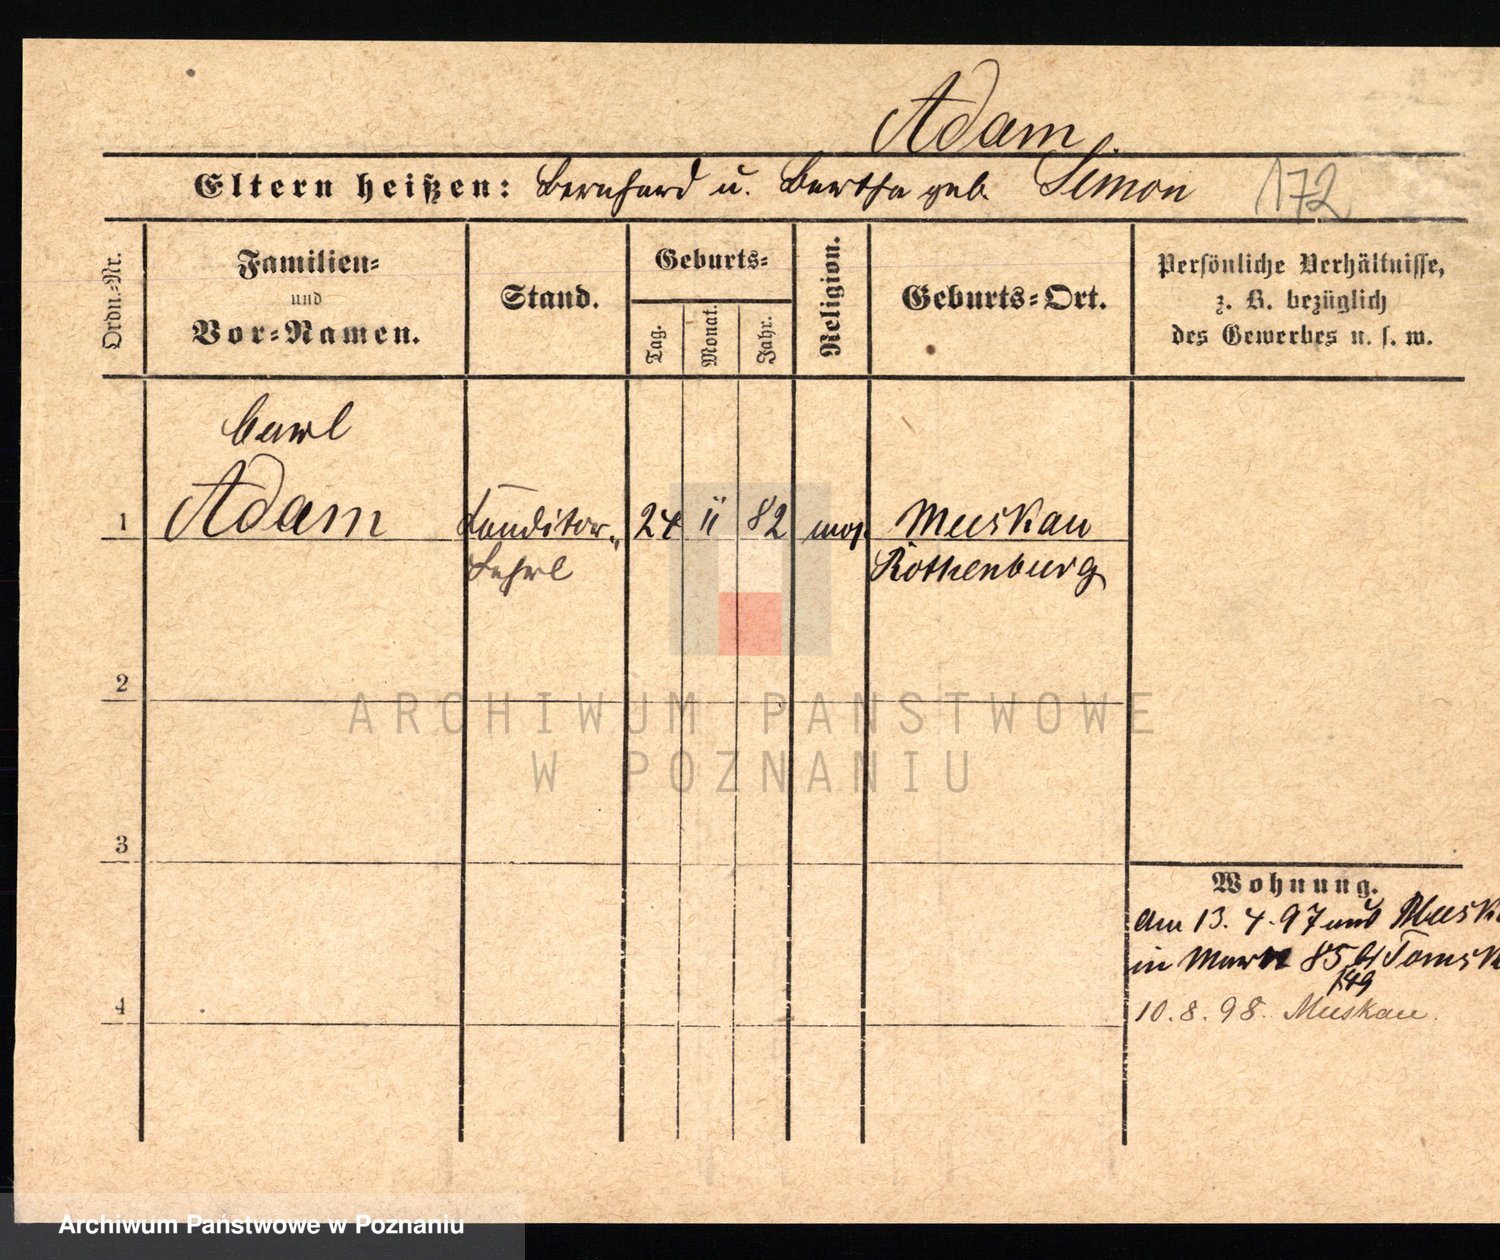 Adam.
Eltern heißen: Bernhard u. Bertha geb. Simon 172
Ordn.-Nr.
Familien-
und
Vor-Namen.
Stand.
Geburts-
Tag.
Monat.
Jahr.
Religion.
Geburts-Ort.
Persönliche Verhältnisse,
z. B. bezüglich
des Gewerbes u. s. w.
Carl
1 Adam Conditor- 24 11 82 mos. Muskau
Lehrl Rothenburg
2
ARCHIWUM PAŃSTWOWE
W POZNANIU
3
Wohnung.
Am 13. 4. 97 aus Musk
in Markt 85 b/ Tomsk
4
10. 8. 98. Muskau.
Archiwum Państwowe w Poznaniu